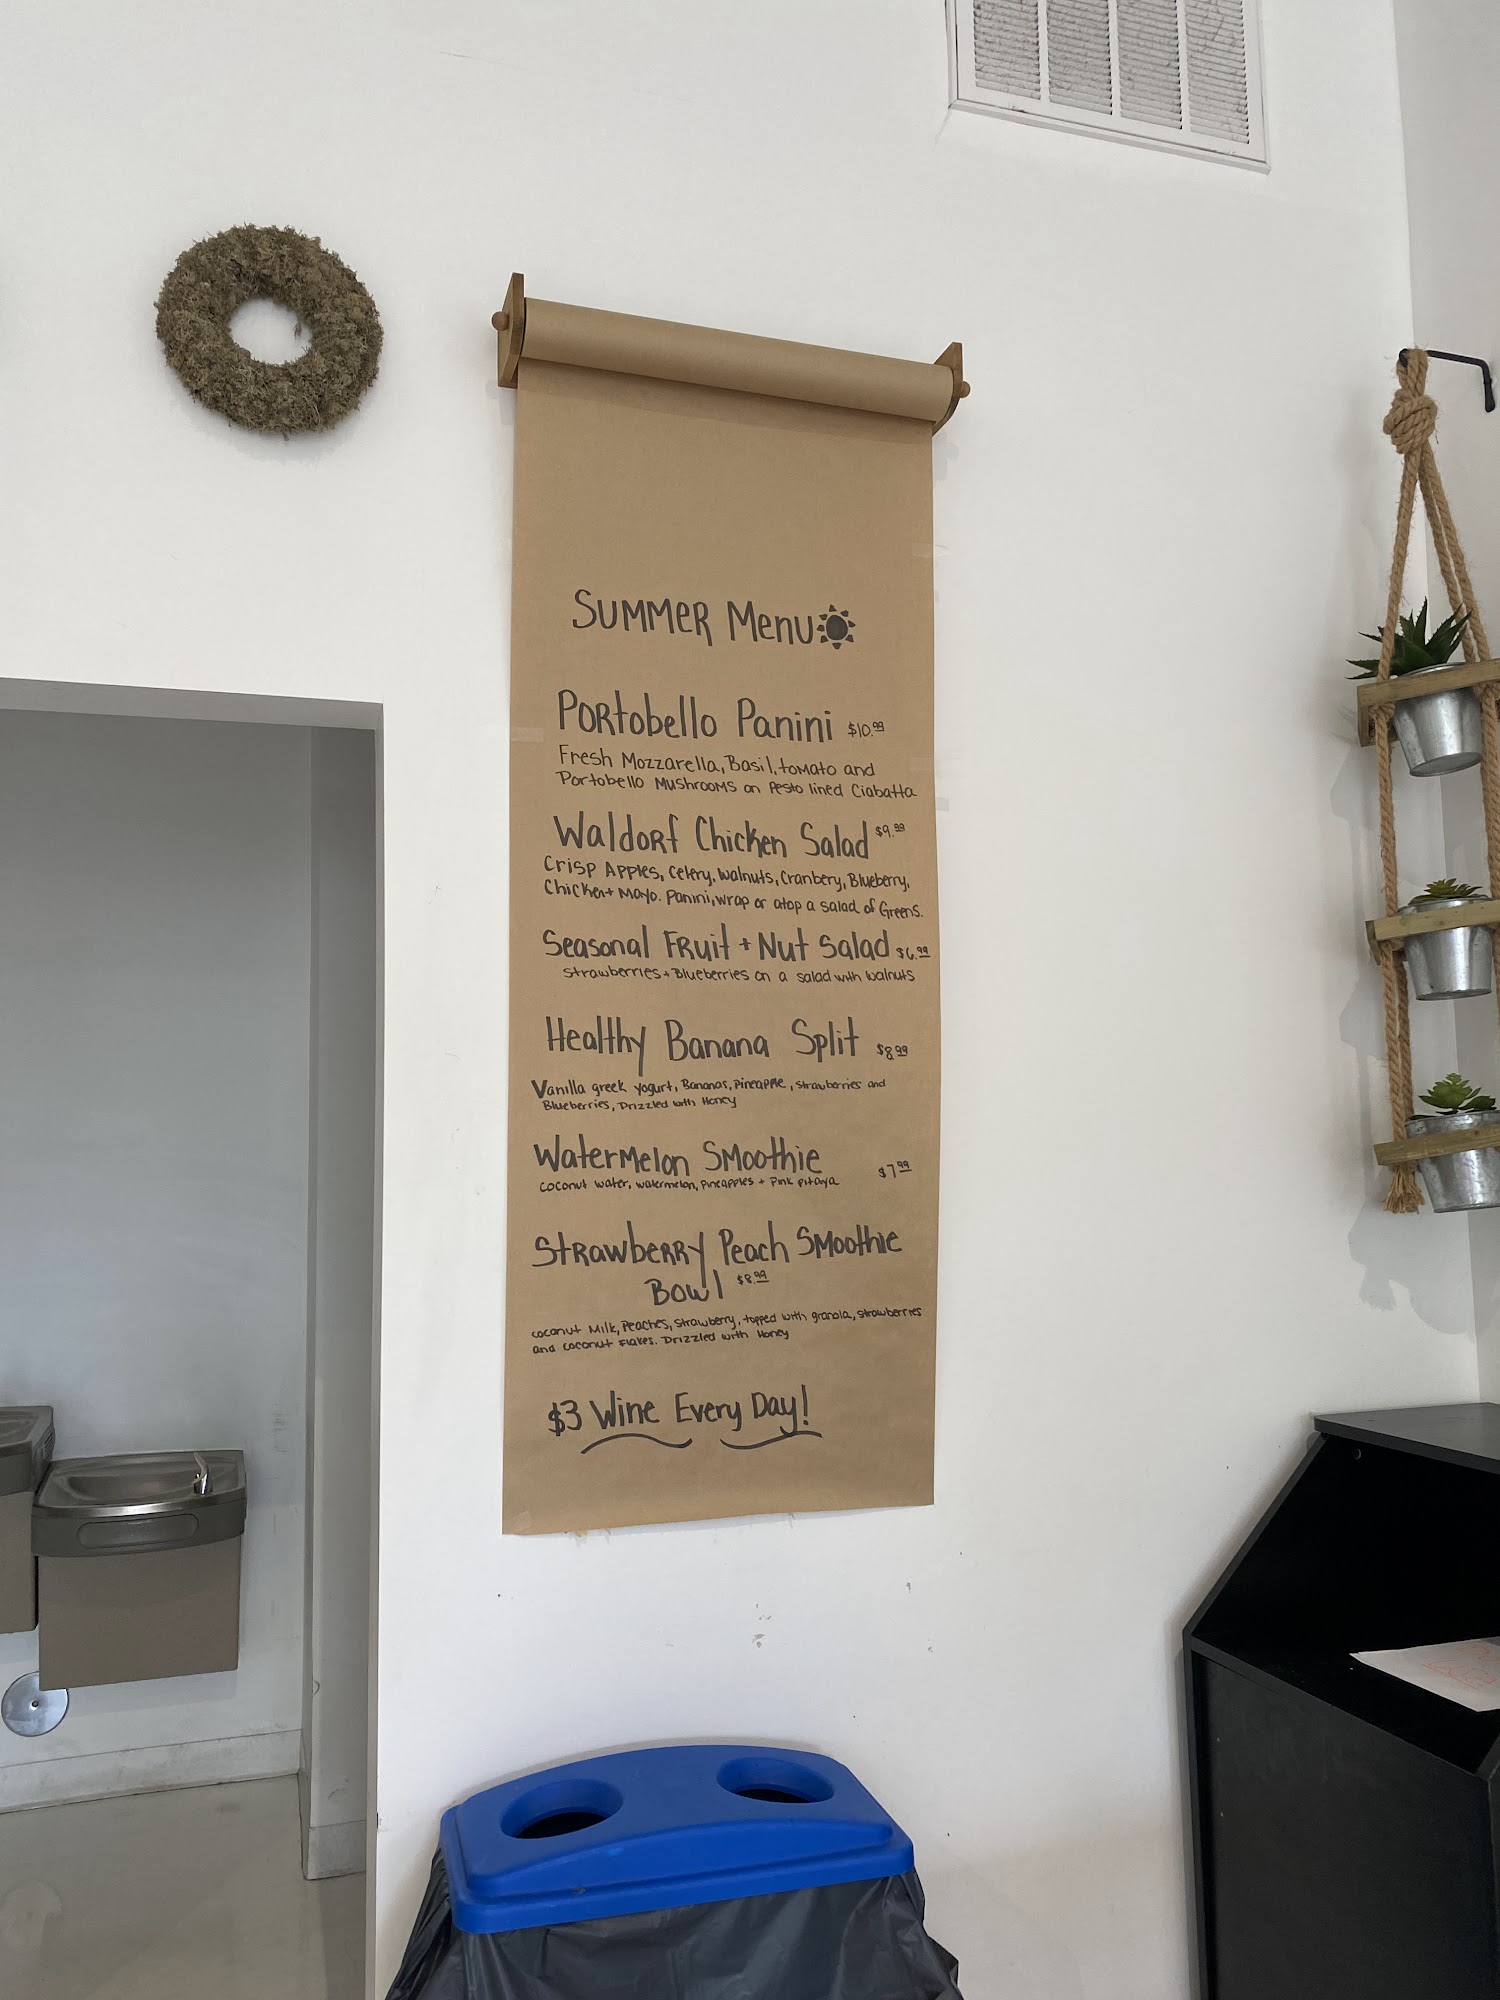 SUMMER Menu
Portobello Panini $10.99
Fresh Mozzarella, Basil, tomato and
Portobello Mushrooms on Pesto lined Ciabatta
Waldorf Chicken Salad $9.99
Crisp Apples, Celery, walnuts, Cranbery, Blueberry,
Chicken + Mayo. Panini, wrap or atop a salad of Greens.
Seasonal Fruit + Nut Salad $6.99
Strawberries + Blueberries on a salad with walnuts
Healthy Banana Split $8.99
Vanilla greek yogurt, Bananas, Pineapple, strawberries and
Blueberries, Drizzled with Honey
Watermelon Smoothie $7.99
coconut water, watermelon, pineapples + Pink pitaya
Strawberry Peach Smoothie
Bowl $8.99
coconut Milk, Peaches, Strawberry, topped with granola, strawberries
and coconut Flakes. Drizzled with Honey
$3 Wine Every Day!